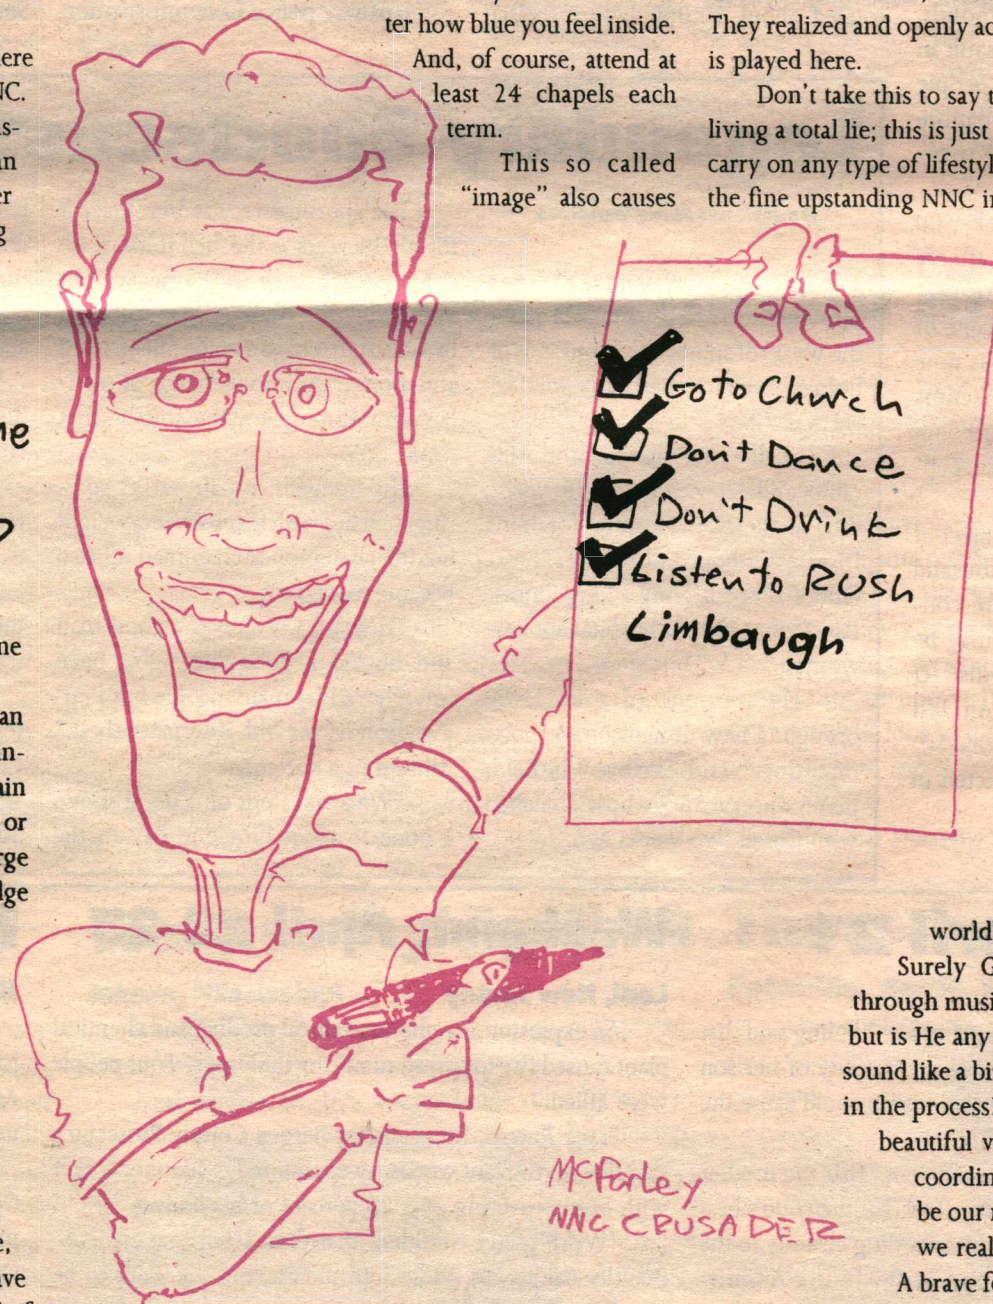 ter how blue you feel inside.
And, of course, attend at
least 24 chapels each
term.
This so called
"image" also causes
They realized and openly ac
is played here.
Don't take this to say t
living a total lie; this is just
carry on any type of lifestyl
the fine upstanding NNC i
ere
NC.
s-
an
er
g
me
an
in-
ain
or
rge
dge
e,
ve
Go to Church
Don't Dance
Don't Drink
Listen to RUSH
Limbaugh
world
Surely G
through musi
but is He any
sound like a bi
in the process
beautiful v
coordin
be our
we real
A brave f
McFarley
NNC CRUSADER